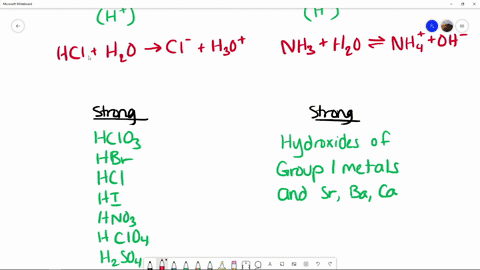 Microsoft Whiteboard
(H⁺)
(H⁺)
HCl + H₂O → Cl⁻ + H₃O⁺
NH₃ + H₂O ⇌ NH₄⁺ + OH⁻
Strong
HClO₃
HBr
HCl
HI
HNO₃
HClO₄
H₂SO₄
Strong
Hydroxides of
Group 1 metals
and Sr, Ba, Ca